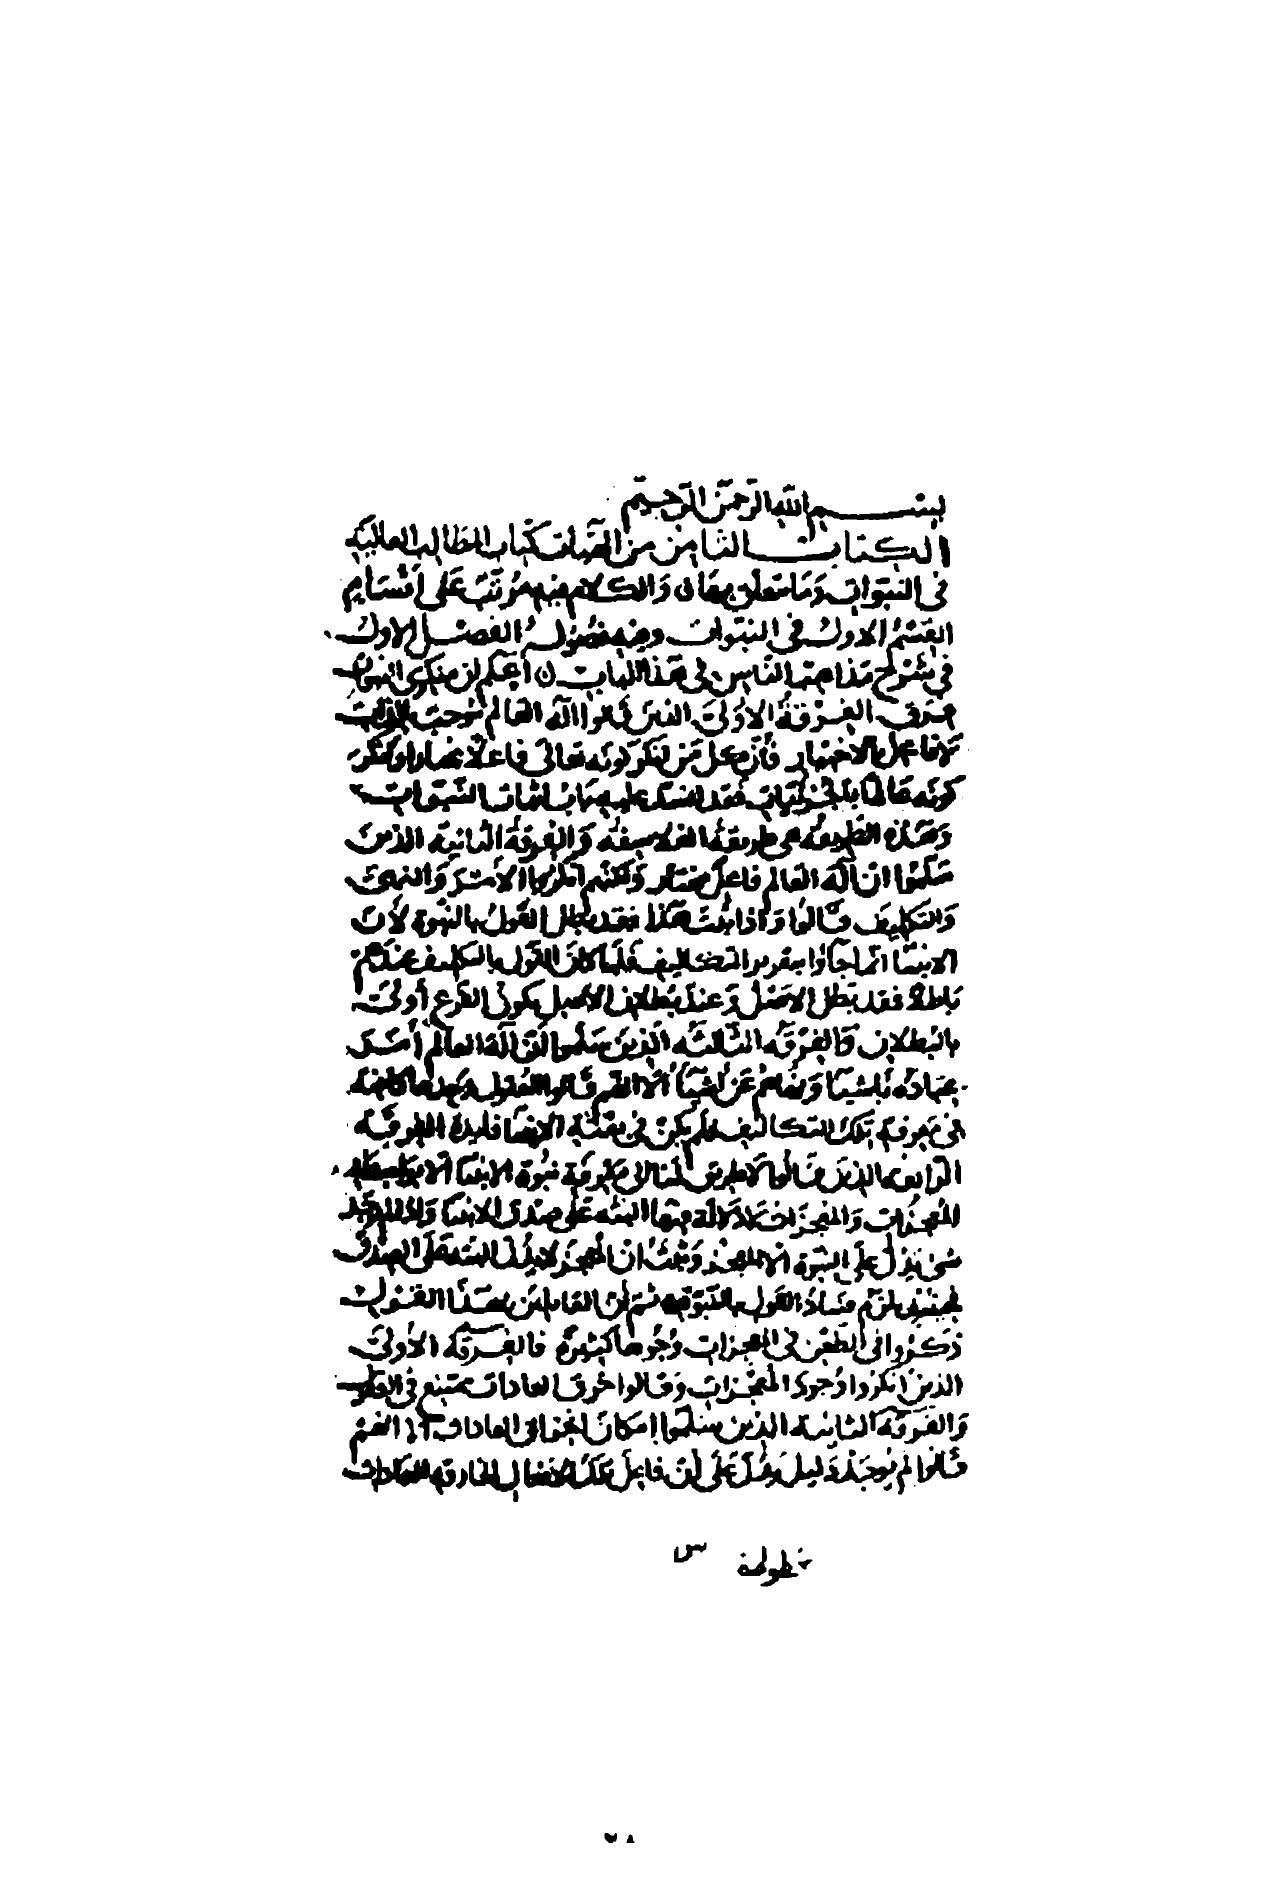 بسم الله الرحمن الرحيم
الكتاب الثامن من الهيات كتاب المطالب العالية
في النبوات وما يتعلق بها والكلام فيه مرتب على اقسام
القسم الاول في النبوات وفيه فصول الفصل الاول
في شرح مذاهب الناس في هذا الباب اعلم ان منكرى النبوات
فرق الفرقة الاولى الذين قالوا اله العالم موجب بالذات
لا فاعل بالاختيار فان كل من انكر كونه تعالى فاعلا مختارا وانكر
كونه عالما بالجزئيات فقد انسد عليه باب اثبات النبوات
وهذه الطريقة هي طريقة الفلاسفة والفرقة الثانية الذين
سلموا ان اله العالم فاعل مختار ولكنهم انكروا الامر والنهى
والتكليف قالوا واذا ثبت هذا فقد بطل القول بالنبوة لان
الانبيا انما جاوا بتقرير التكاليف فلما كان القول بالتكليف عندهم
باطلا فقد بطل الاصل وعند بطلان الاصل يكون الفرع أولى
بالبطلان والفرقة الثالثة الذين سلموا ان اله العالم أمر
عباده باشيا ونهاهم عن اشيا الا انهم قالوا العقول وحدها كافية
في معرفة تلك التكاليف فلم يكن في بعثة الانبيا فايدة الفرقة
الرابعة الذين قالوا لا طريق لنا الى معرفة نبوة الانبيا الا بواسطة
المعجزات والمعجزات لا دلالة فيها البتة على صدق الانبيا واذا لم يوجد
شى يدل على النبوة الا المعجز وثبت ان المعجز لا يدل البتة على الصدق
فحينئذ يلزم فساد القول بالنبوة ثم ان القايلين بهذا القول
ذكروا في الطعن في المعجزات وجوها كثيرة فالفرقة الأولى
الذين انكروا وجود المعجزات وقالوا خرق العادات ممتنع في العقول
والفرقة الثانية الذين سلموا امكان انخراق العادات الا انهم
قالوا لم يوجد دليل يدل على ان فاعل تلك الافعال الخارقة للعادات
خطوطة س
٢٨